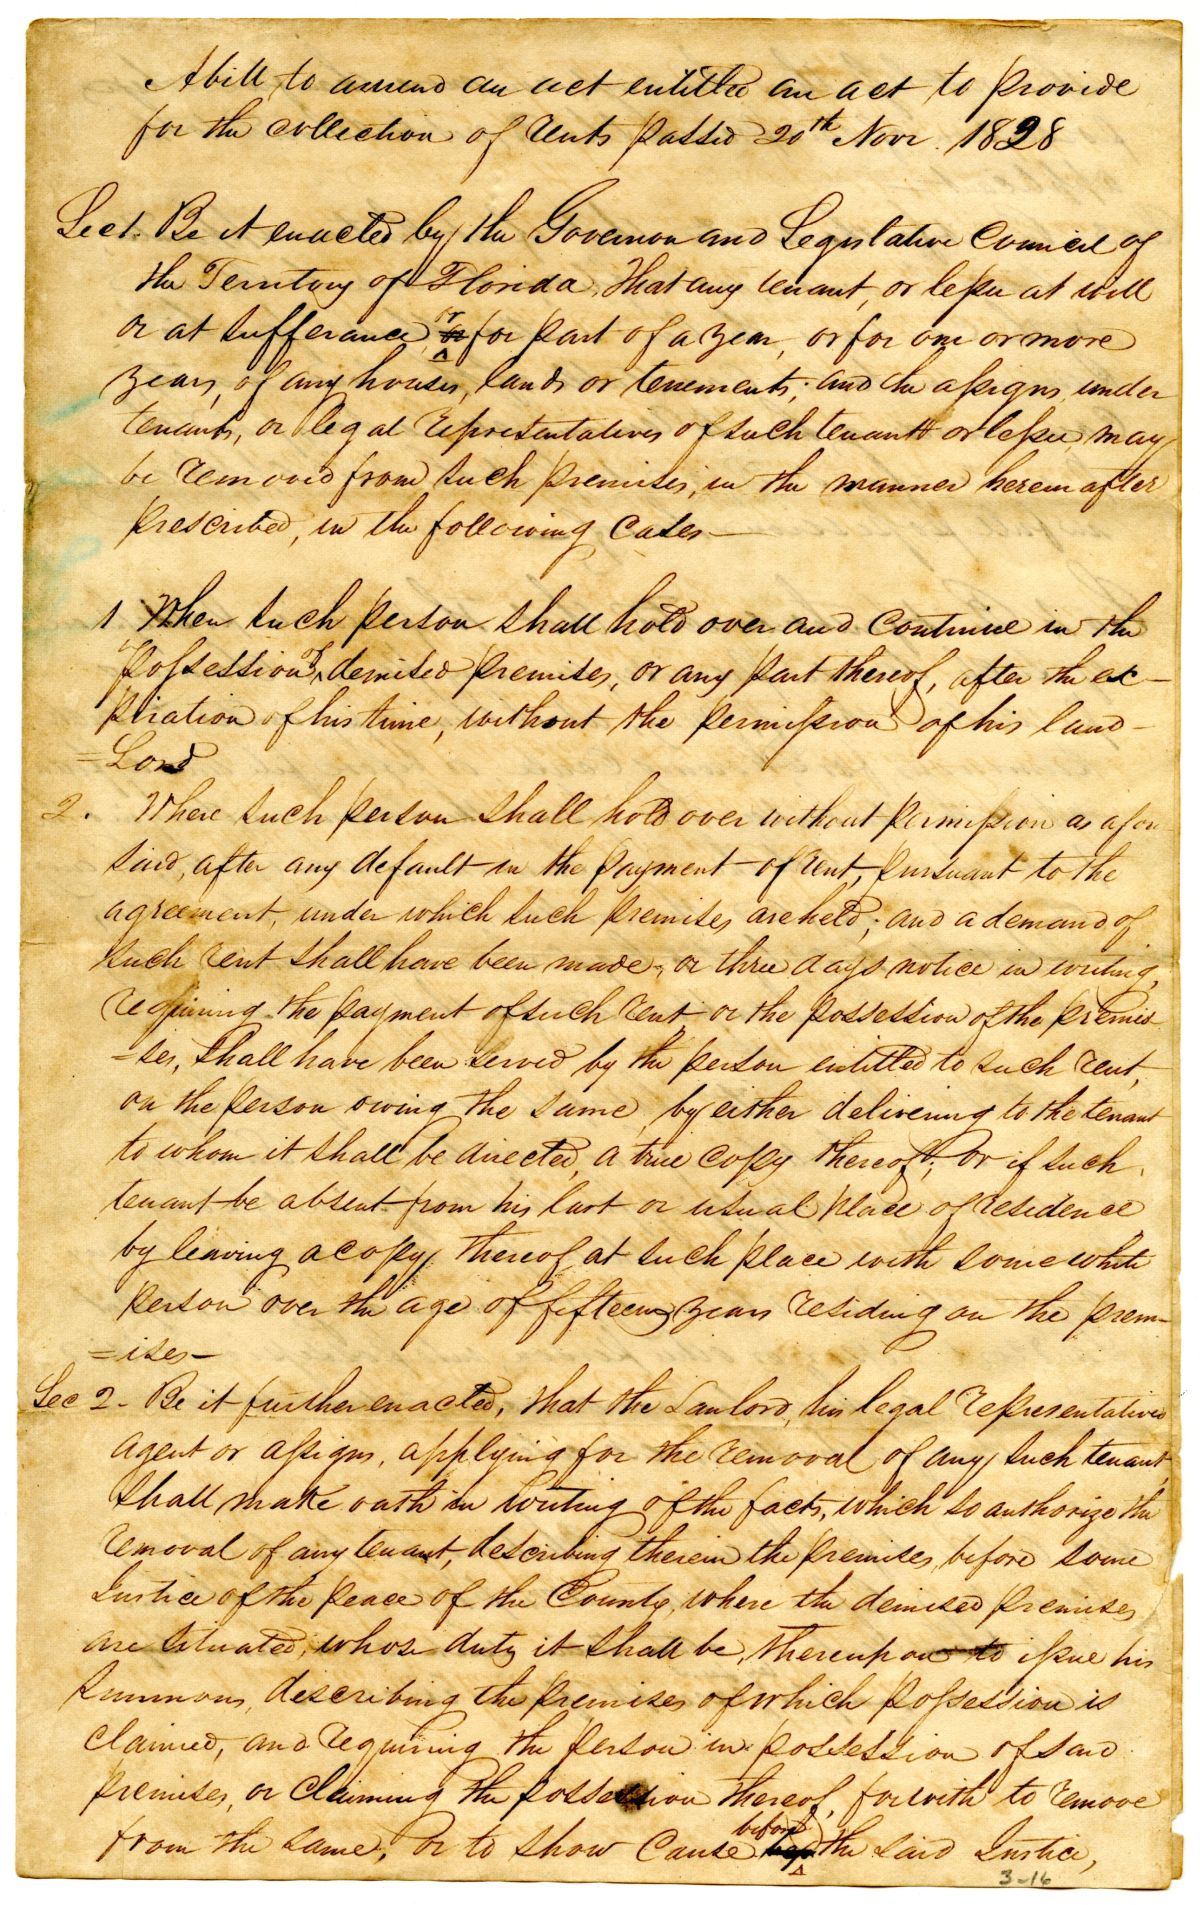 A bill, to amend an act entitled an act to provide
for the collection of rents passed 20th Novr. 1828
Sec 1. Be it enacted by the Governor and Legislative Council of
the Territory of Florida, That any tenant, or lessee at will
or at sufferance, or for part of a year, or for one or more
years, of any houses, lands or tenements; and the assigns, under
tenants, or legal representatives of such tenant or lessee, may
be removed from such premises, in the manner herein after
prescribed, in the following cases—
1 When such person shall hold over and continue in the
possession of demised premises, or any part thereof, after the ex-
piration of his time, without the permission of his land-
=Lord
2. Where such person shall hold over without permission as afore
said, after any default in the payment of rent, pursuant to the
agreement, under which such premises are held; and a demand of
such rent shall have been made, or three days notice in writing,
requiring the payment of such rent, or the possession of the premis-
=ses, shall have been served by the person entitled to such rent,
on the person owing the same, by either delivering to the tenant
to whom it shall be directed, a true copy thereof; or if such
tenant be absent from his last or usual place of residence
by leaving a copy thereof at such place with some white
person over the age of fifteen years residing on the prem-
=ises—
Sec 2- Be it further enacted, that the Lanlord, his legal representatives
agent or assigns, applying for the removal of any such tenant,
shall make oath in writing of the facts, which so authorize the
removal of any tenant, describing therein the premises, before some
Justice of the peace of the County, where the demised premises
are situated, whose duty it shall be, thereupon to issue his
summons, describing the premises of which possession is
claimed, and requiring the person in possession of said
premises, or claiming the possession thereof, forwith to remove
from the same, or to show Cause before the said Justice,
3-16